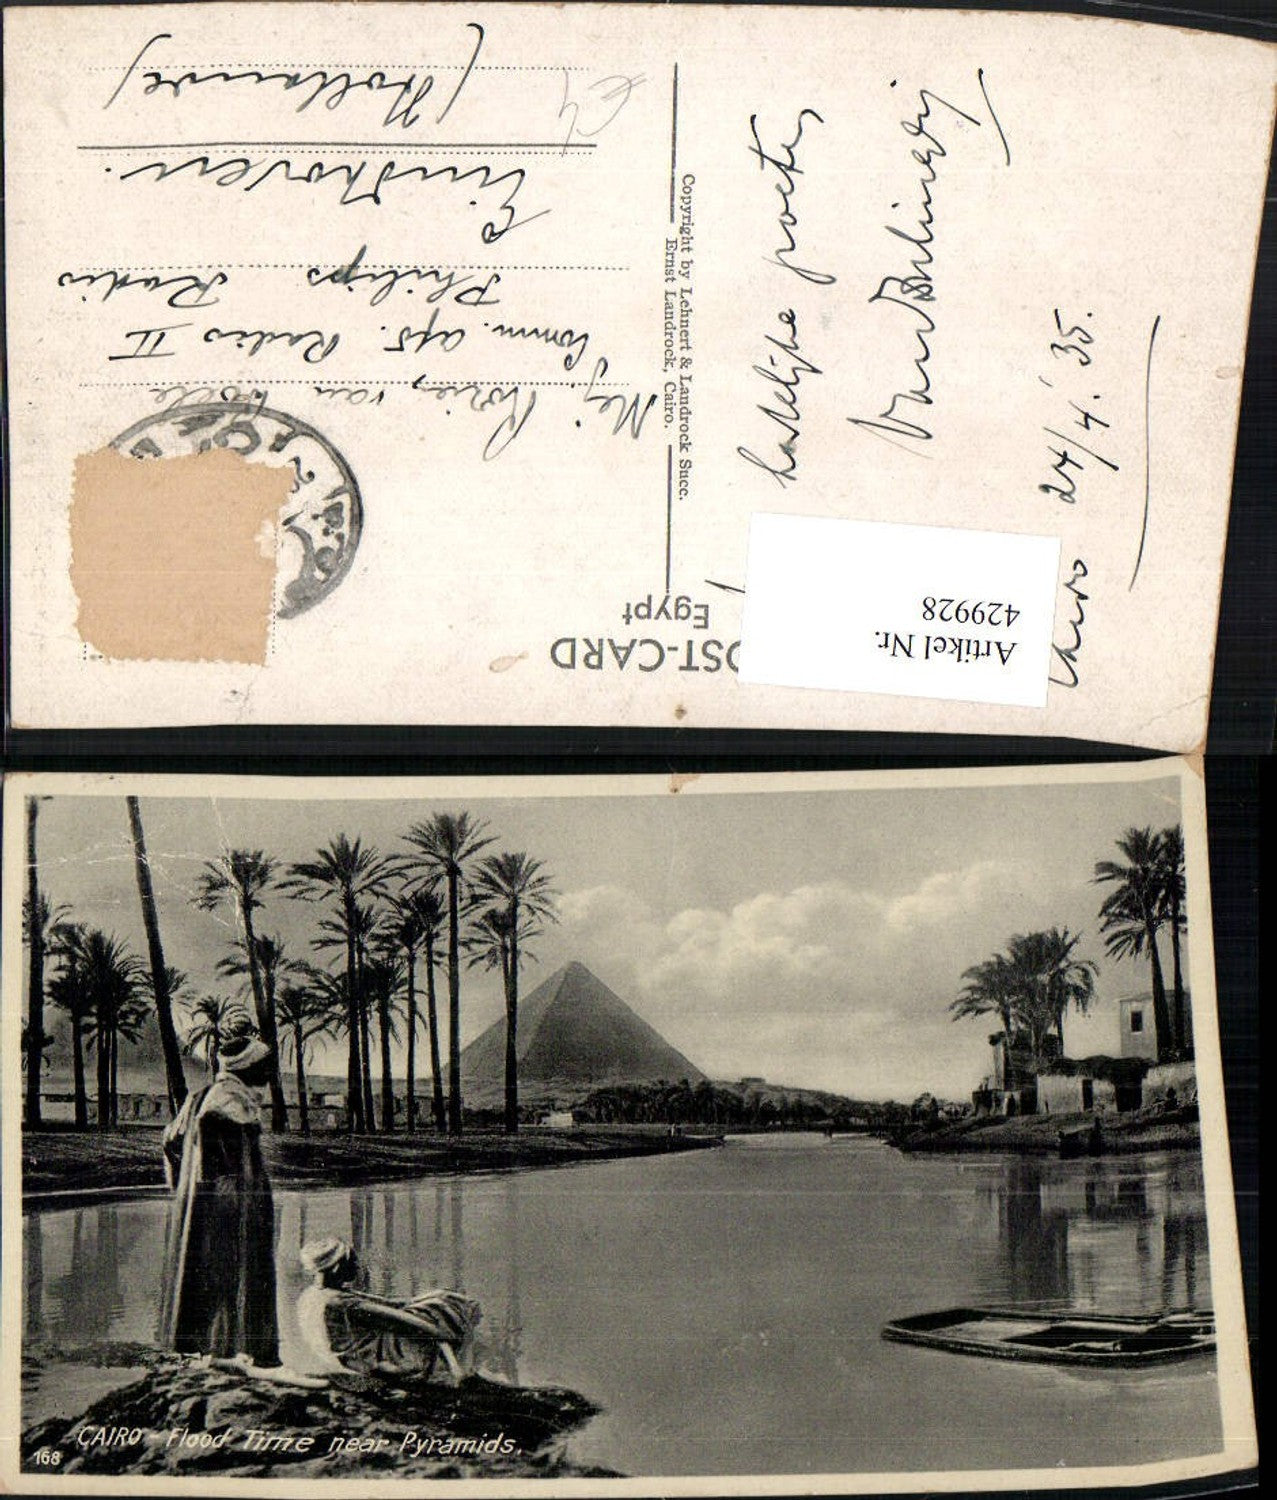 POST-CARD
Egypt
Artikel Nr.
429928
Cairo 24/4.'35.
hartelijke groeten
Copyright by Lehnert & Landrock Succ.
Ernst Landrock, Cairo.
Mej.
Comm. afd. Radio II
Philips Radio
Eindhoven.
(Hollande)
CAIRO - Flood Time near Pyramids.
168